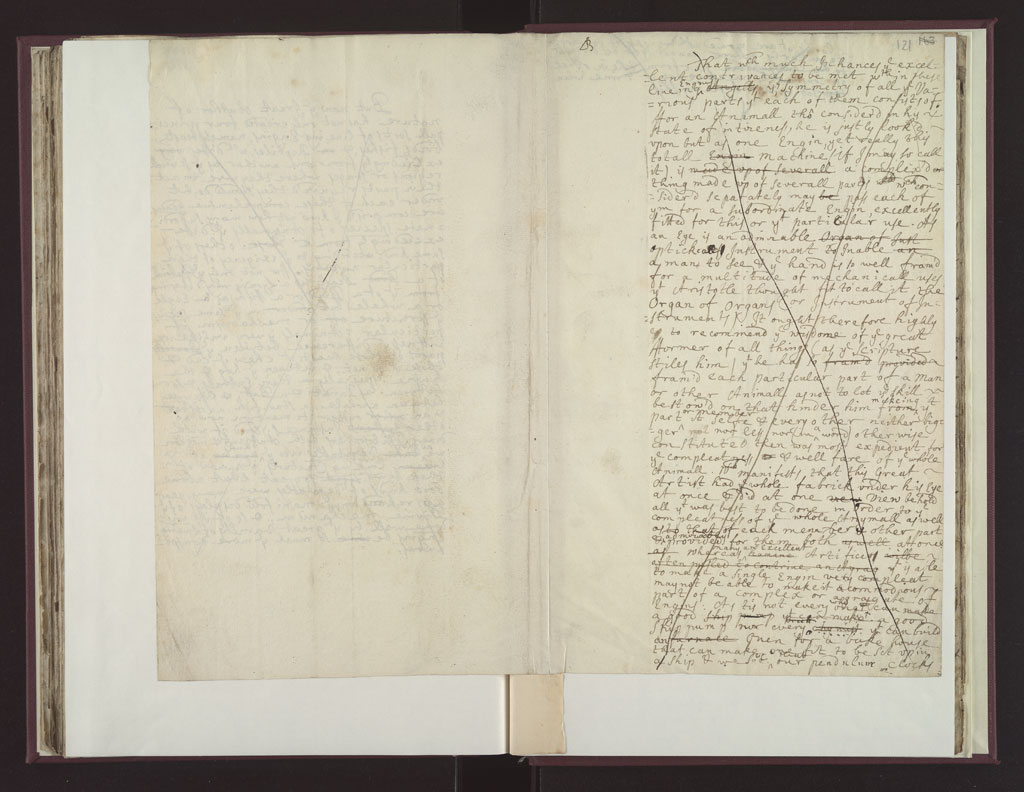 121
That wch much Inhances ye excel-
lent contrivances to be met wth in these
liveing Engines ye symmetry of all ye Va-
=rious parts yt each of them consists of.
For an Animall tho consider'd in hys
state of intirenes, he is justly look'd
upon but as one Engin, yet really this
totall Engin Machine (if I may so call
it) is made up of severall a complex'd
thing made up of severall parts wch con-
=sider'd separately may be pass each of
ym for a subordinate Engin excellently
fitted for this or yt particular use. As
an Eye is an admirable Organ of Just
optickall Instrument to Inable an
a man to see & ye hand is so well fram'd
for a multitude of mechanicall uses
yt Aristotle thought fit to call it the
Organ of Organs (or Instrument of In-
=struments). It ought therefore highly
to recommend ye wisdome of ye great
Former of all things (as ye scripture
stiles him) yt he has fram'd provided
fram'd each particular part of a Man
or other Animall as not to let ye skill
bestow'd on that hinder him from making yt
part or member it selfe & every other neither big-
ger nor less nor in a word otherwise
Constituted then was most expedient for
ye compleatness & well fare of ye whole
Animall. wch manifests, that this Great
Artist had ye whole fabrick under his Eye
at once & did at one view behold
all yt was best to be done in order to ye
compleatness of ye whole Anymall as well
as to that of each member & other part
& admirably provided for them both at once
whereas many an excellent Artificer
yt is able
to make a single Engin very compleat
may not be able to make it a commodious
part of a complex or aggregate of
Engins. As tis not every one yt can make
a good ship pump yt can make a good
ship pump nor every yt can build
an Oven for a bake house
that can make one fit to be set up in
a ship & we see that our pendulum Clocks